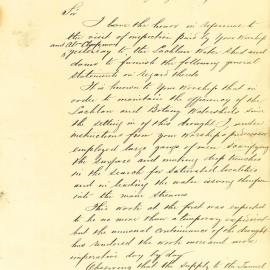 Sir
I have the honor in reference to
the visit of inspection paid by Your Worship
and
yesterday to the Lachlan Water Shed and
dams to furnish the following general
statements in regard thereto
It is known to Your Worship that in
order to maintain the efficiency of the
Lachlan and Botany Watersheds since
the setting in of this drought I, under
instructions from your Worship's predecessor
employed large gangs of men scarifying
the surface and making deep trenches
in the search for saturated localities
and in leading the water issuing therefrom
into the main streams
This work at the first was expected
to be no more than a temporary expedient
but the unusual continuance of the drought
has rendered the work more and more
imperative day by day
Observing that the supply to the Tunnel